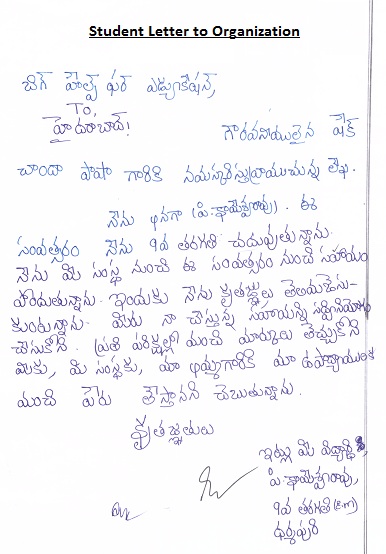 Student Letter to Organization
బిగ్ హెల్ప్ ఫర్ ఎడ్యుకేషన్,
To,
హైదరాబాద్!
గౌరవనీయులైన షేక్
చాందా పాషా గారికి నమస్కరిస్తూ వ్రాయుచున్న లేఖ.
నేను అనగా (పి. భాయేశ్వరావు). ఈ
సంవత్సరం నేను 9వ తరగతి చదువుతున్నాను.
నేను మీ సంస్థ నుంచి ఈ సంవత్సరం నుంచి సహాయం
పొందుతున్నాను. ఇందుకు నేను కృతజ్ఞులై తెలియచేసు-
కుంటున్నాను. మీరు నా చేస్తున్న సహాయాన్ని సద్వినియోగం
చేసుకొని. ప్రతి పరీక్షల్లో మంచి మార్కులు తెచ్చుకొని
మీకు, మీ సంస్థకు, మా అమ్మగారికి మా ఉపాధ్యాయులకు
మంచి పేరు తెస్తానని చెబుతున్నాను.
కృతజ్ఞతలు
ఇట్లు మీ విద్యార్థి,
పి. భాయేశ్వరావు,
9వ తరగతి (E.m)
ధర్మపురి